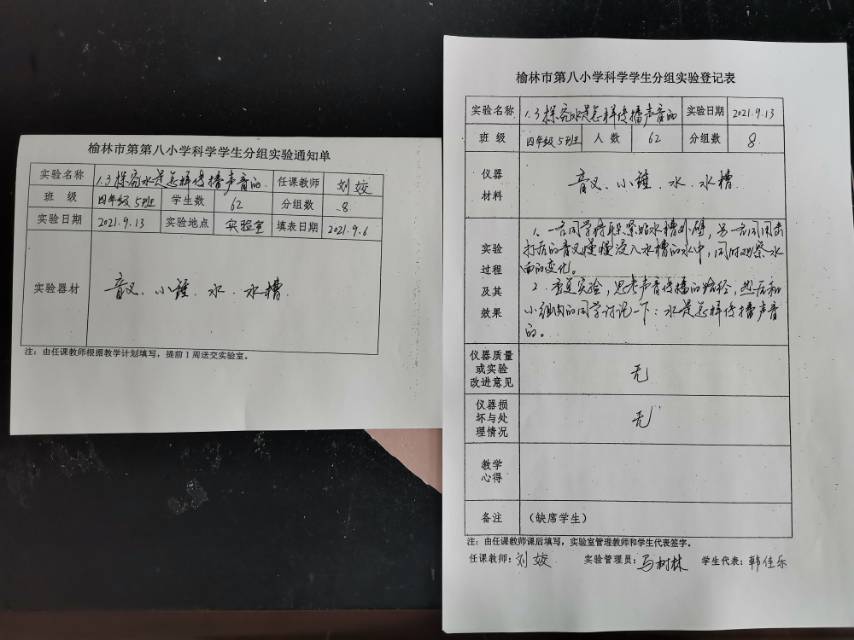 榆林市第第八小学科学学生分组实验通知单
实验名称 1.3探究水是怎样传播声音的 任课教师 刘姣
班 级 四年级5班 学生数 62 分组数 8
实验日期 2021.9.13 实验地点 实验室 填表日期 2021.9.6
实验器材 音叉、小锤、水、水槽.
注：由任课教师根据教学计划填写，提前1周送交实验室。
榆林市第八小学科学学生分组实验登记表
实验名称 1.3探究水是怎样传播声音的 实验日期 2021.9.13
班 级 四年级5班 人 数 62 分组数 8
仪器
材料
音叉、小锤、水、水槽.
实验
过程
及其
效果
1、一名同学将耳朵贴水槽外壁，另一名同学用击
打后的音叉慢慢浸入水槽的水中，同时观察水
面的变化。
2、重复实验，思考声音传播的路径，然后和
小组内的同学讨论一下：水是怎样传播声音
的。
仪器质量
或实验
改进意见
无
仪器损
坏与处
理情况
无
教学
心得
备注 （缺席学生）
注：由任课教师课后填写，实验室管理教师和学生代表签字。
任课教师：刘姣 实验管理员：马树林 学生代表：韩佳乐